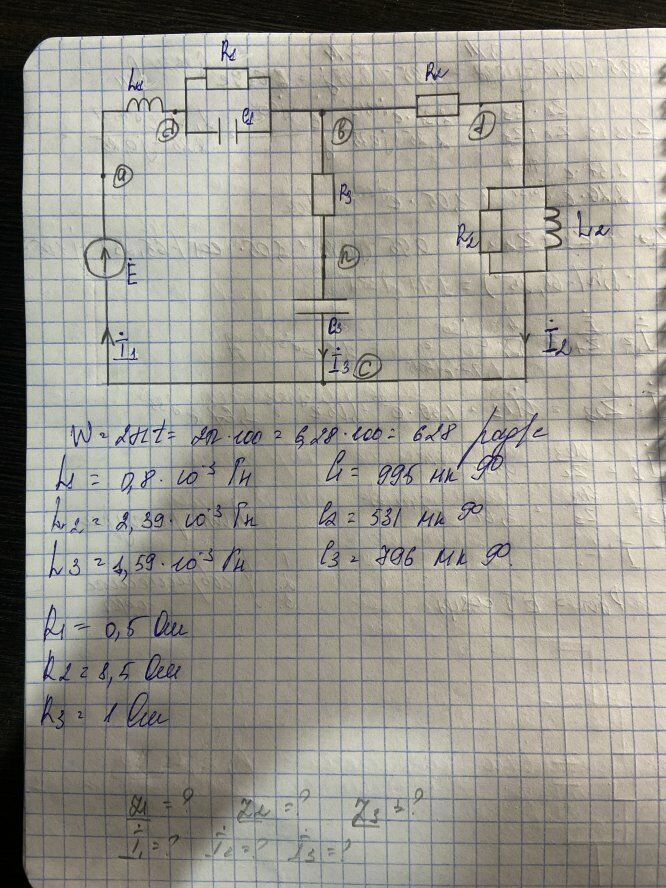 R1
L1
d
C1
a
b
R2
f
R3
n
R2
L2
Ė
C3
İ1
İ3
c
İ2
W = 2πf = 2π·100 = 6,28·100 = 628 рад/с
L1 = 0,8·10⁻³ Гн
C1 = 995 мкФ
L2 = 2,39·10⁻³ Гн
C2 = 531 мкФ
L3 = 1,59·10⁻³ Гн
C3 = 796 мкФ.
R1 = 0,5 Ом
R2 = 1,5 Ом
R3 = 1 Ом
Z1 = ? Z2 = ? Z3 = ?
İ1 = ? İ2 = ? İ3 = ?